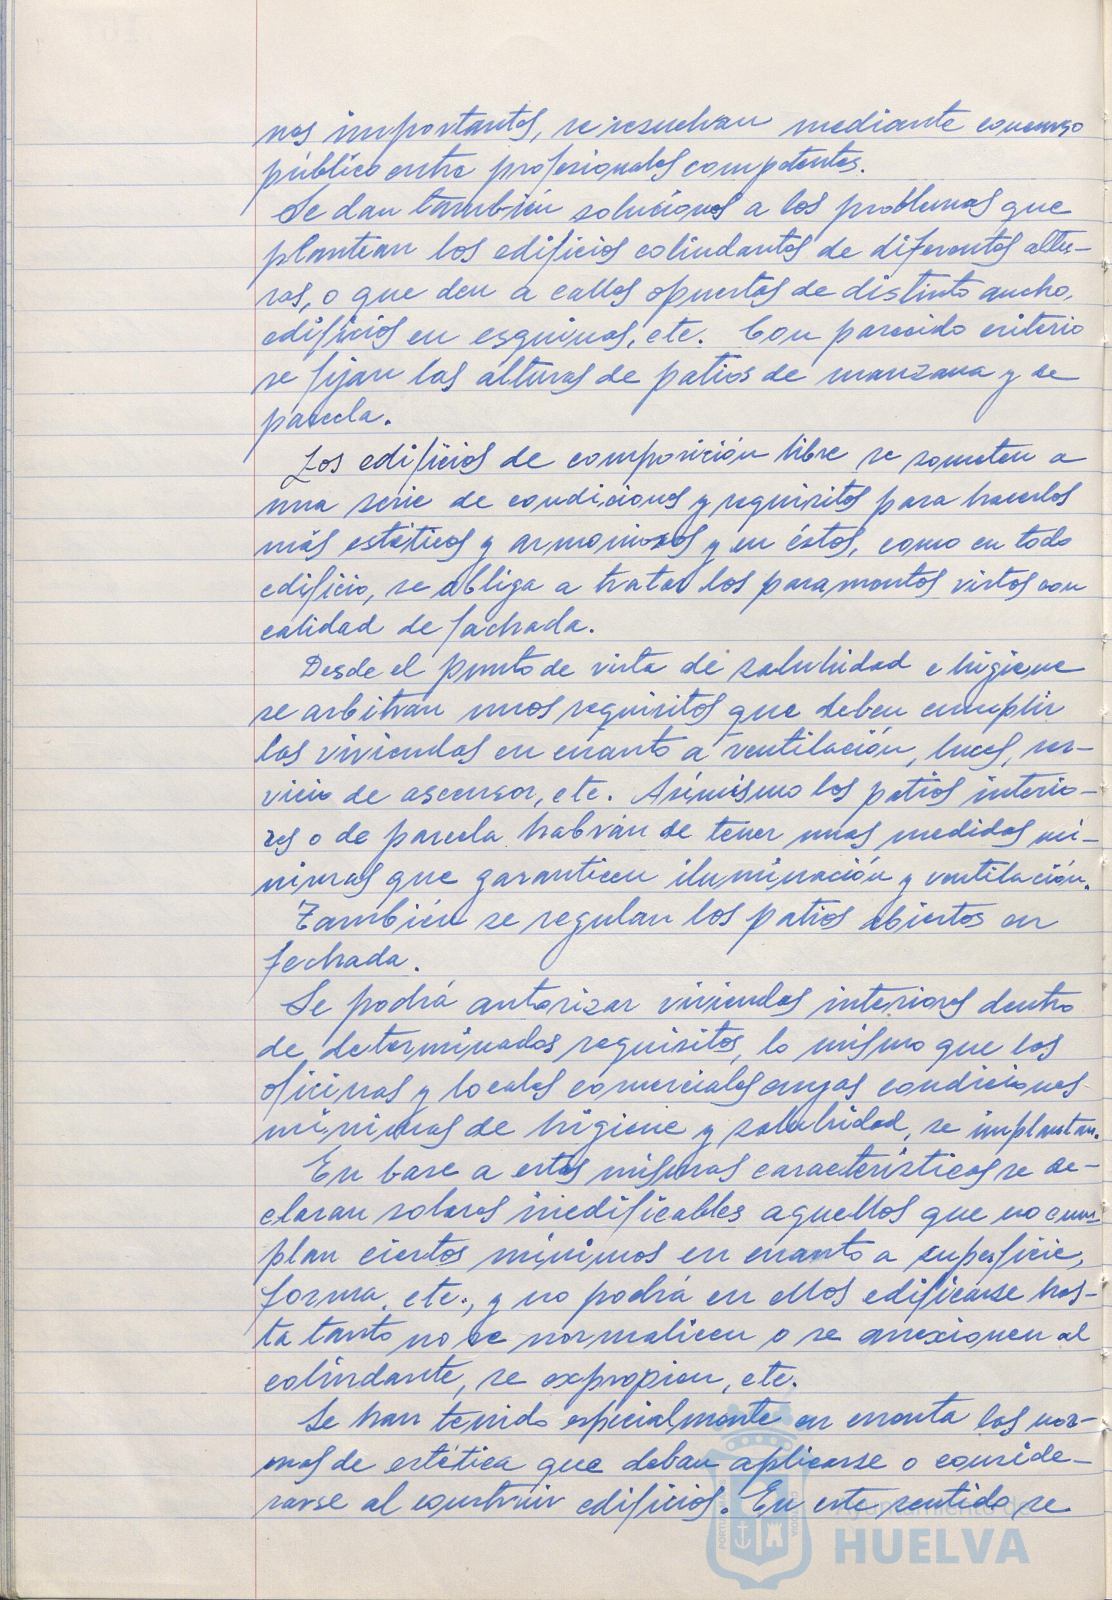 nos importantes, se resuelvan mediante concurso
público entre profesionales competentes.
Se dan también soluciones a los problemas que
plantean los edificios colindantes de diferentes altu-
ras, o que den a calles opuestas de distinto ancho,
edificios en esquinas, etc. Con parecido criterio
se fijan las alturas de patios de manzana y de
parcela.
Los edificios de composición libre se someten a
una serie de condiciones y requisitos para hacerlos
más estéticos y armoniosos y en éstos, como en todo
edificio, se obliga a tratar los paramentos vistos con
calidad de fachada.
Desde el punto de vista de salubridad e higiene
se arbitran unos requisitos que deben cumplir
las viviendas en cuanto a ventilación, luces, ser-
vicio de ascensor, etc. Asímismo los patios interio-
res o de parcela habrán de tener unas medidas mí-
nimas que garanticen iluminación y ventilación.
También se regulan los patios abiertos en
fachada.
Se podrá autorizar viviendas interiores dentro
de determinados requisitos, lo mismo que los
oficinas y locales comerciales cuyas condiciones
mínimas de higiene y salubridad, se implantan.
En base a estas mismas características se de-
claran solares inedificables aquellos que no cum-
plan ciertos mínimos en cuanto a superficie,
forma, etc., y no podrá en ellos edificarse has-
ta tanto no se normalicen o se anexionen al
colindante, se expropien, etc.
Se han tenido especialmente en cuenta las nor-
mas de estética que deban aplicarse o conside-
rarse al construir edificios. En este sentido se
Ayuntamiento de
HUELVA